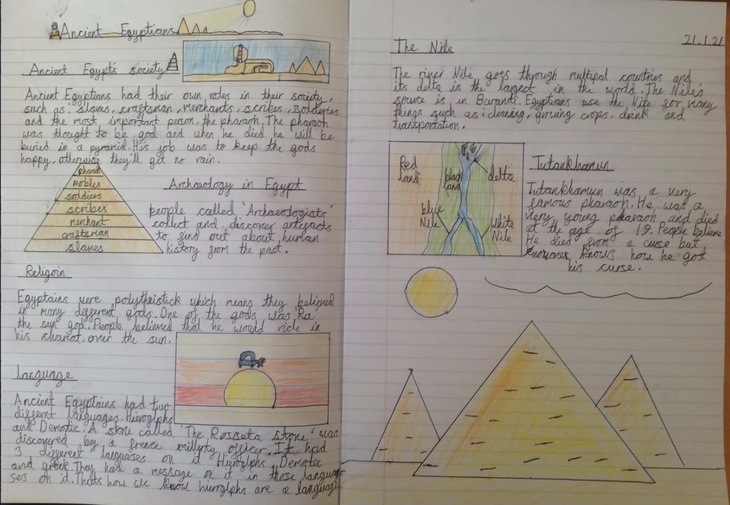 Ancient Egyptians
Ancient Egypt's society
Ancient Egyptians had their own roles in their society,
such as: slaves, craftsman, merchants, scribes, soldiers
and the most important person, the pharaoh. The pharaoh
was thought to be god and when he died he will be
buried in a pyramid. His job was to keep the gods
happy, otherwise they'll get no rain.
pharaoh
nobles
soldiers
scribes
merchant
craftsman
slaves
Archaeology in Egypt
people called 'Archaeologists'
collect and discover artefacts
to find out about human
history from the past.
Religoin
Egyptains were polytheistick which means they believed
in many different gods. One of the gods was 'Ra'
the sun god. People believed that he would ride in
his chariot over the sun.
Language
Ancient Egyptains had two
different languages. Hieroglphs
and Demotic. A stone called 'The Rossata stone' was
discovered by a frence millyty officer. It had
3 different languages on it Hieroglphs, Demotic
and greek. They had a message on it in those langua
ses on it. Thats how we know hieroglphs are a language
21.1.21
The Nile
The river Nile goes through multipal countries and
its delta is the largest in the world. The Nile's
source is in Burunti. Egyptians use the Nile for many
things such as: cleaning, growing crops, drink and
transportation.
Red land
black land
delta
blue Nile
white Nile
Tutankhamun
Tutankhamun was a very
famous pharaoh. He was a
very young pharaoh and died
at the age of 19. People believe
He died from a curse but
knows how he got
his curse.